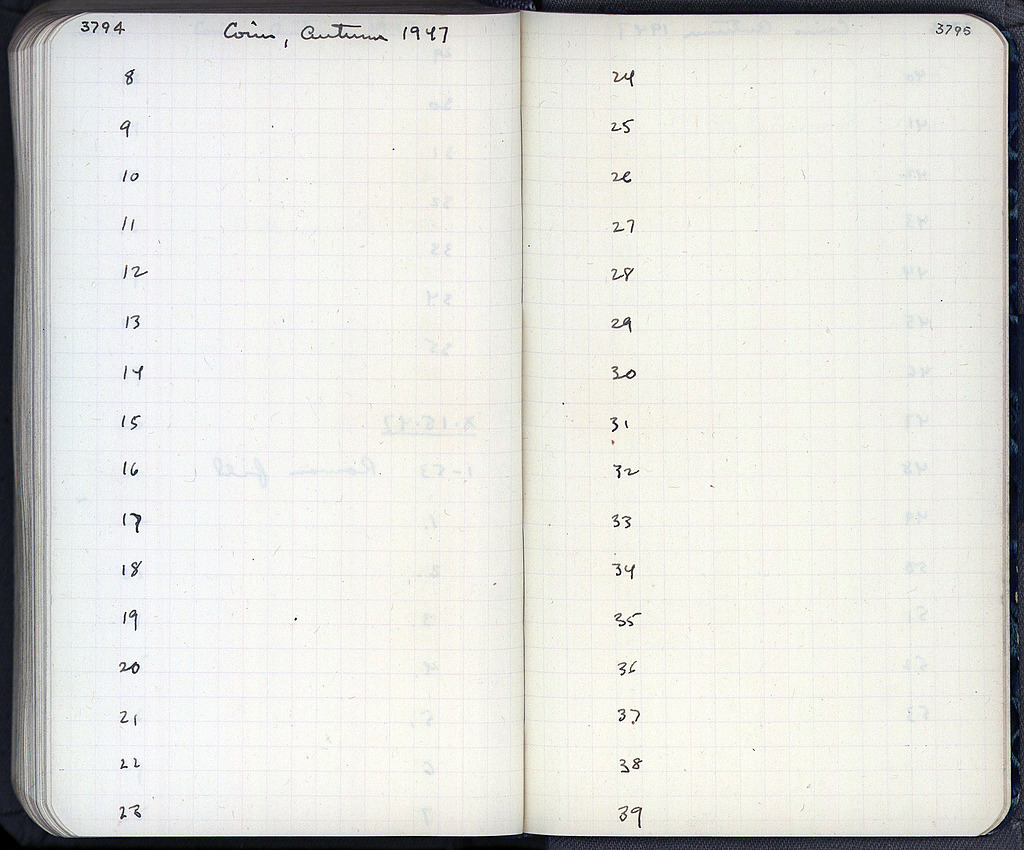 3794
Coins, Autumn 1947
8
9
10
11
12
13
14
15
16
17
18
19
20
21
22
23
3795
24
25
26
27
28
29
30
31
32
33
34
35
36
37
38
39